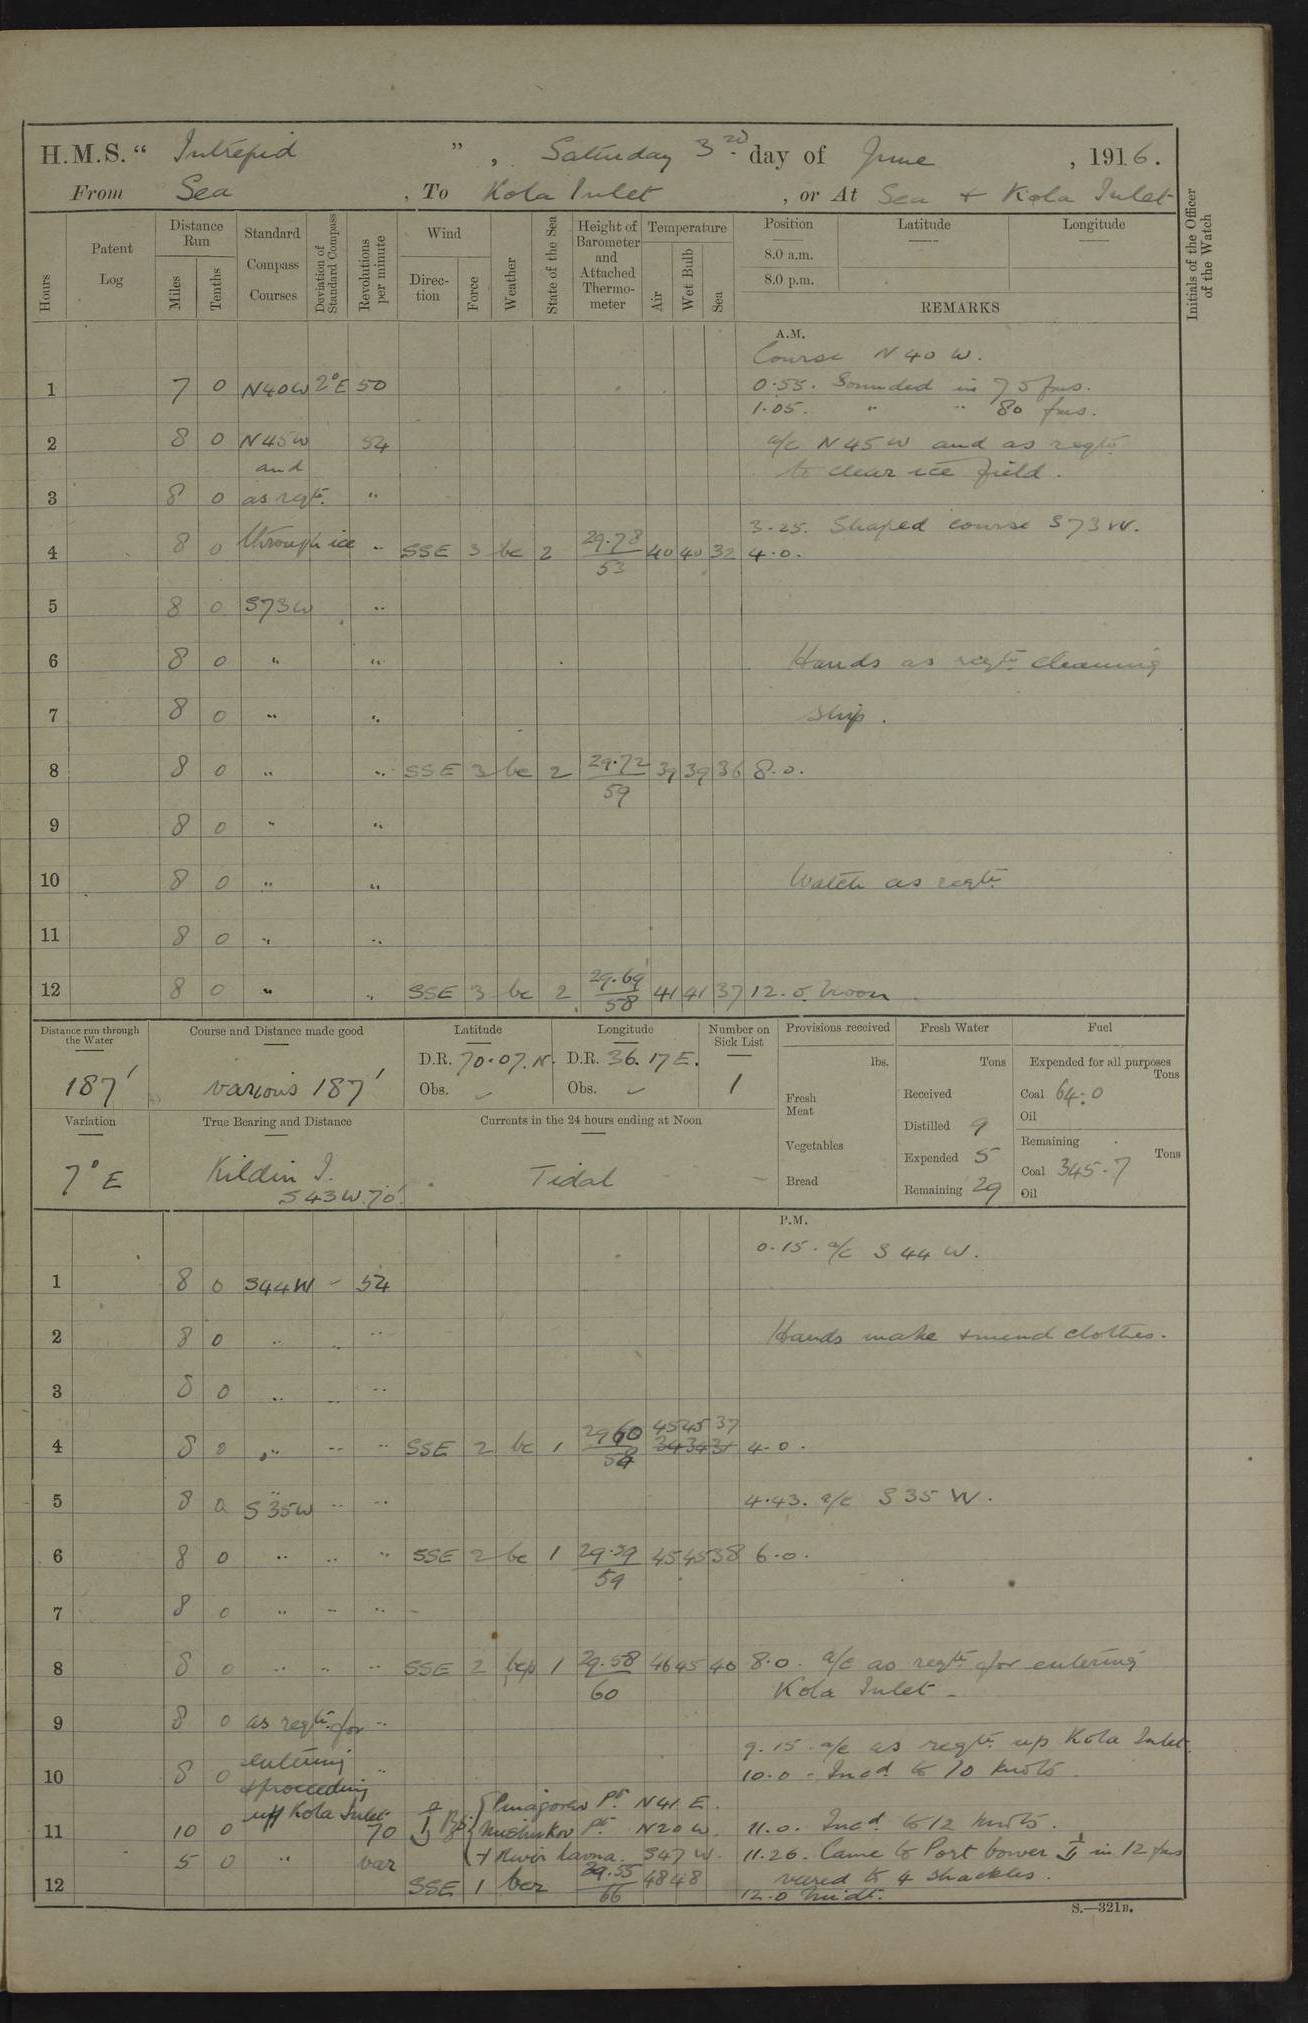 H.M.S. " Intrepid " , Saturday 3rd day of June , 1916.
From Sea , To Kola Inlet , or At Sea & Kola Inlet
Hours
Patent Log
Distance Run
Miles
Tenths
Standard Compass Courses
Deviation of Standard Compass
Revolutions per minute
Wind
Direction
Force
Weather
State of the Sea
Height of Barometer and Attached Thermometer
Temperature
Air
Wet Bulb
Sea
Position
8.0 a.m.
8.0 p.m.
Latitude
Longitude
REMARKS
Initials of the Officer of the Watch
A.M.
Course N 40 W.
1 7 0 N40W 2°E 50 0.55. Sounded in 75 fms.
1.05. " " 80 fms.
2 8 0 N45W 54 a/c N 45 W and as reqte
and to clear ice field.
3 8 0 as reqte "
3.25. Shaped course S 73 W.
4 8 0 through ice " SSE 3 bc 2 29.78 53 40 40 32 4.0.
5 8 0 S73W "
6 8 0 " " Hands as reqte cleaning
7 8 0 " " ship.
8 8 0 " " SSE 3 bc 2 29.72 59 39 39 36 8.0.
9 8 0 " "
10 8 0 " " Watch as reqte
11 8 0 " "
12 8 0 " " SSE 3 bc 2 29.69 58 41 41 37 12.0 Noon
Distance run through the Water
187'
Course and Distance made good
various 187'
Latitude
D.R. 70.07.N.
Obs. ✓
Longitude
D.R. 36.17 E.
Obs. ✓
Number on Sick List
1
Provisions received
lbs.
Fresh Meat
Vegetables
Bread
Fresh Water
Tons
Received
Distilled 9
Expended 5
Remaining 29
Fuel
Expended for all purposes
Tons
Coal 64.0
Oil
Remaining
Tons
Coal 345.7
Oil
Variation
7° E
True Bearing and Distance
Kildin I.
S 43 W. 70'
Currents in the 24 hours ending at Noon
Tidal
P.M.
0.15. a/c S 44 W.
1 8 0 S44W - 54
2 8 0 " " " Hands make & mend clothes.
3 8 0 " " "
45 45 37
4 8 0 " " " SSE 2 bc 1 29.60 58 34 34 31 4.0.
5 8 0 S 35W " " 4.43. a/c S 35 W.
6 8 0 " " " SSE 2 bc 1 29.59 59 45 45 38 6.0.
7 8 0 " " "
8 8 0 " " " SSE 2 bcp 1 29.58 60 46 45 40 8.0. a/c as reqte for entering
Kola Inlet
9 8 0 as reqte for "
9.15. a/c as reqte up Kola Inlet.
10 8 0 entering " 10.0. Incd to 10 knots.
& proceeding
up Kola Inlet Pt N 41 E.
11 10 0 70 Mishukov Pt N 20 W. 11.0. Incd to 12 knots.
5 0 " var S 47 W. 11.26. Came to Port bower in 12 fms
veered to 4 shackles.
12 SSE 1 bcr 29.55 66 48 48 12.0 Midt.
S.—321B.